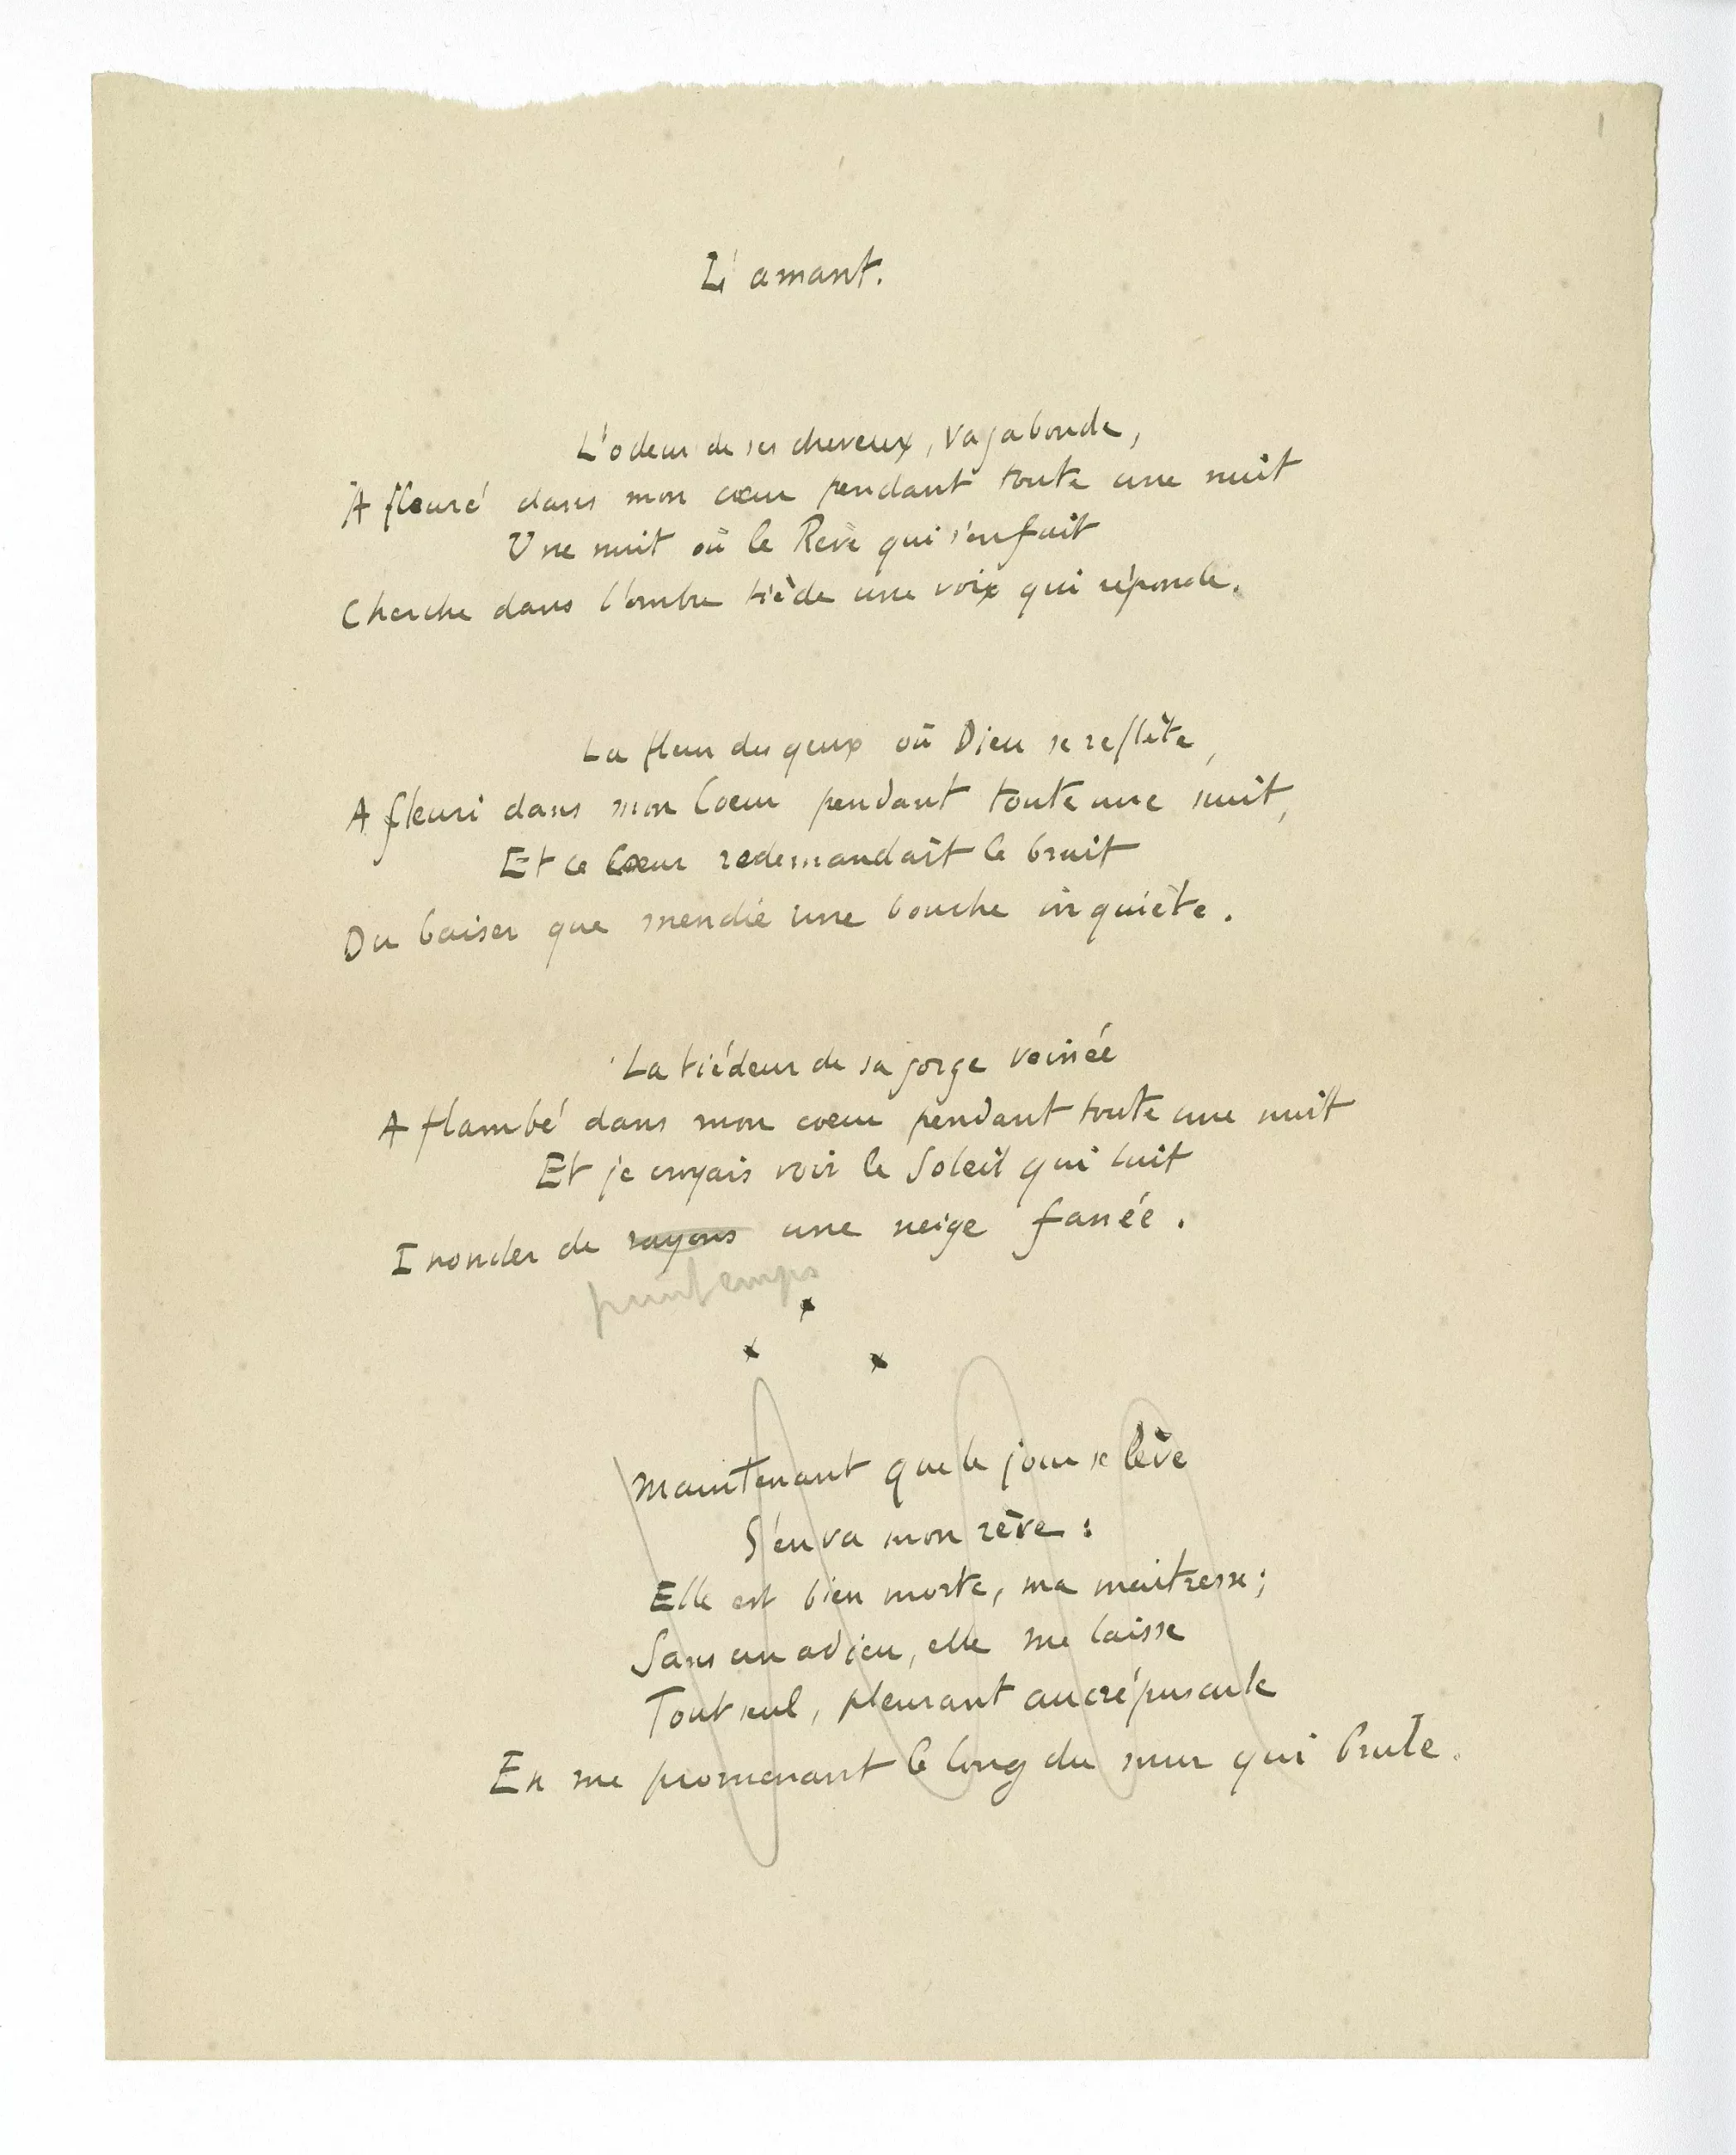 1
L'amant.
L'odeur de ses cheveux, vagabonde,
A fleuré dans mon cœur pendant toute une nuit
Une nuit où le Rêve qui s'enfuit
Cherche dans l'ombre tiède une voix qui réponde.
La fleur des yeux où Dieu se reflète,
A fleuri dans mon Coeur pendant toute une nuit,
Et ce Cœur redemandait le bruit
Du baiser que mendie une bouche inquiète.
La tiédeur de sa gorge veinée
A flambé dans mon coeur pendant toute une nuit
Et je croyais voir le Soleil qui luit
Inonder de rayons une neige fanée.
printemps
x
x x
Maintenant que le jour se lève
S'en va mon rêve :
Elle est bien morte, ma maitresse ;
Sans un adieu, elle me laisse
Tout seul, pleurant au crépuscule
En me promenant le long du mur qui brule.